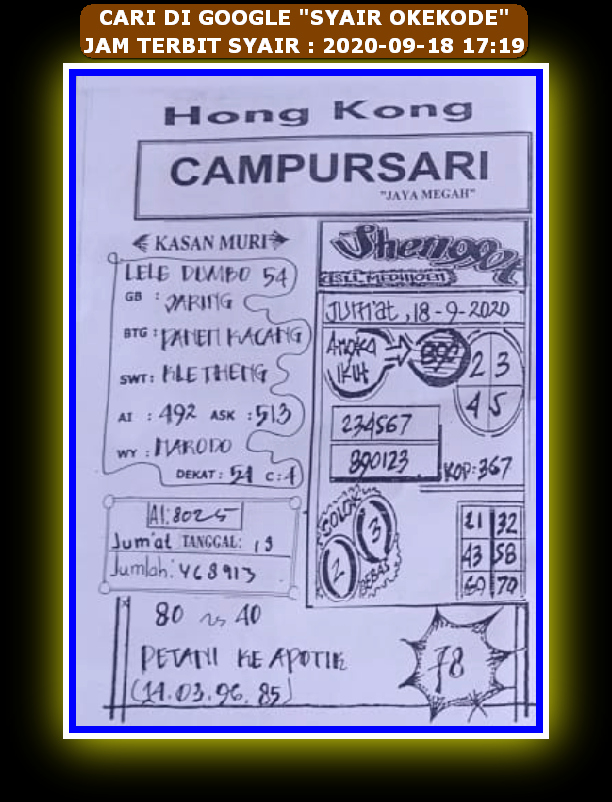 CARI DI GOOGLE "SYAIR OKEKODE"
JAM TERBIT SYAIR : 2020-09-18 17:19
Hong Kong
CAMPURSARI
"JAYA MEGAH"
KASAN MURI
LELE DUMBO 54
GB : JARING
BTG : PANEN KACANG
SWT : KLETHENG
AI : 492 ASK : 513
WY : MARODO
DEKAT : 51 C : 4
AI: 8025
Jum'at TANGGAL: 13
Jumlah: 468913
Jum'at, 18-9-2020
Angka
IKUT
2 3
4 5
234567
890123
KOP: 367
COLOK
3
2
BEBAS
21 32
43 58
69 70
80 vs 40
PETANI KE APOTIK
(14.03.96.85)
78